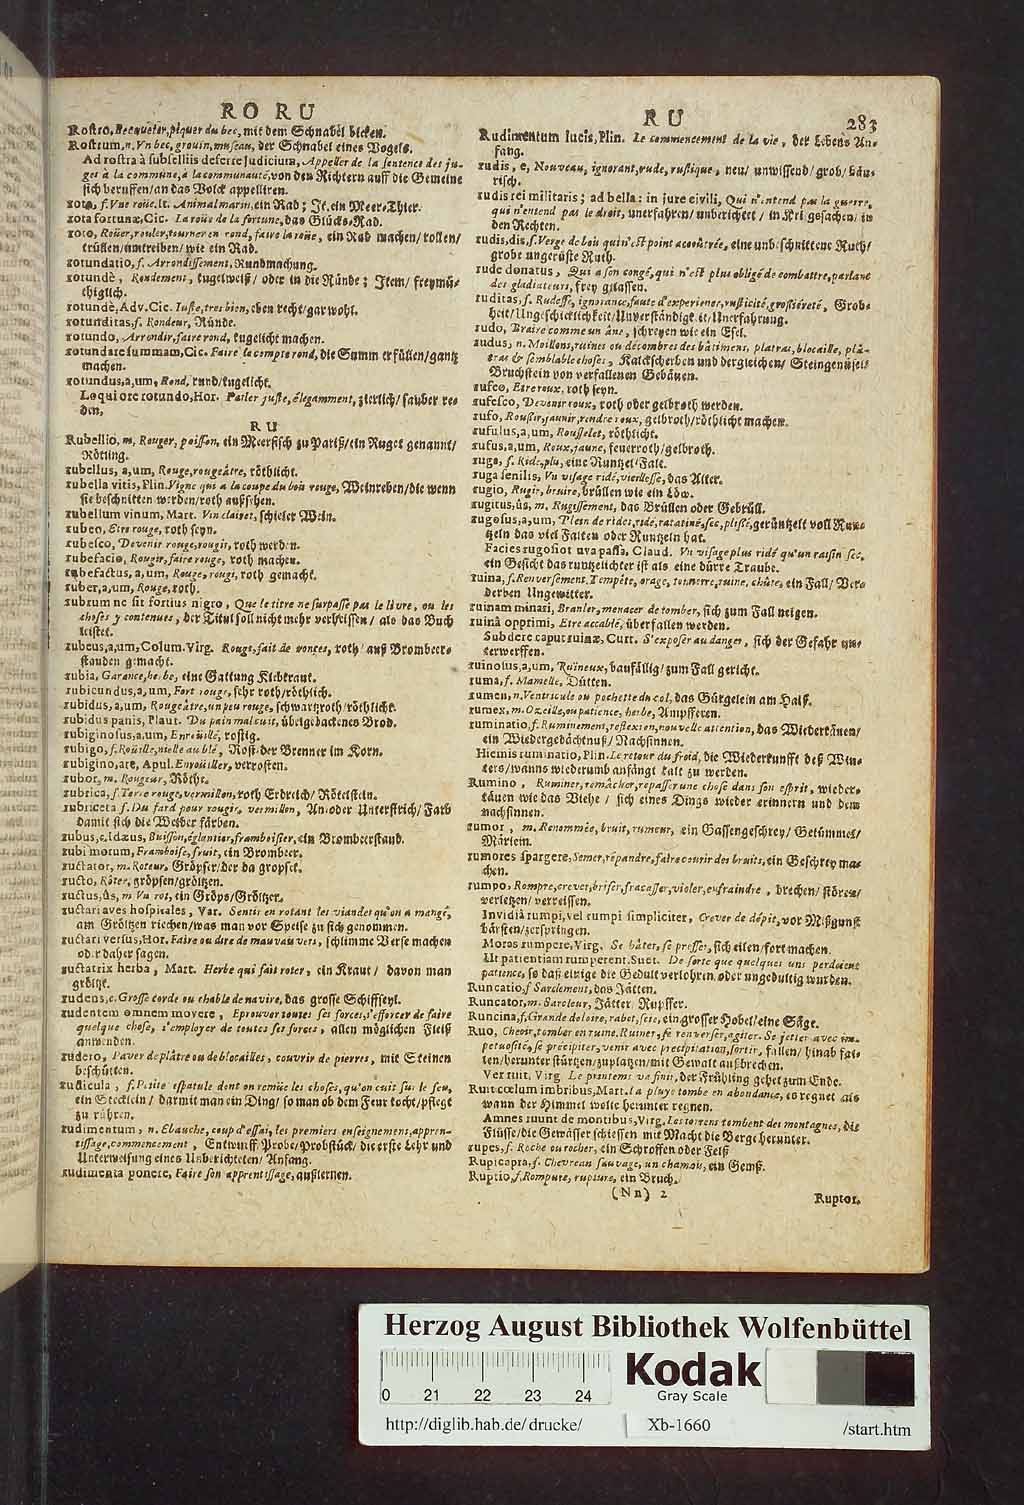 RO RU
Rostro, Becqueter, piquer du bec, mit dem Schnabel bicken.
Rostrum, n. Vn bec, grouin, museau, der Schnabel eines Vogels.
Ad rostra à subselliis deferre Judicium, Appeller de la sentence des ju-
ges à la commune, à la communauté, von den Richtern auff die Gemeine
sich beruffen/an das Volck appelliren.
rota, f. Vne roüe. It. Animal marin, ein Rad; It. ein Meer-Thier.
rota fortunæ, Cic. La roüe de la fortune, das Glücks-Rad.
roto, Roüer, rouler, tourner en rond, faire la roüe, ein Rad machen/rollen/
trüllen/umtreiben/wie ein Rad.
rotundatio, f. Arrondissement, Rundmachung.
rotundè, Rondement, kugelweiß/ oder in die Ründe; Item/ freymü-
thiglich.
rotundè, Adv. Cic. Juste, tres bien, eben recht/gar wohl.
rotunditas, f. Rondeur, Ründe.
rotundo, Arrondir, faire rond, kugelicht machen.
rotundare summam, Cic. Faire le compte rond, die Summ erfüllen/gantz
machen.
rotundus, a, um, Rond, rund/kugelicht.
Loqui ore rotundo, Hor. Parler juste, élegamment, zierlich/sauber re-
den,
RU
Rubellio, m, Rouger, poisson, ein Meerfisch zu Pariß/ein Ruget genannt/
Rötling.
rubellus, a, um, Rouge, rougeâtre, röthlicht.
rubella vitis, Plin. Vigne qui a la coupe du bois rouge, Weinreben/die wenn
sie beschnitten werden/roth außsehen.
rubellum vinum, Mart. Vin clairet, schieler Wein.
rubeo, Etre rouge, roth seyn.
rubesco, Devenir rouge, rougir, roth werden.
rubefacio, Rougir, faire rouge, roth machen.
rubefactus, a, um, Rouge, rougi, roth gemacht.
ruber, a, um, Rouge, roth.
rubrum ne sit fortius nigro, Que le titre ne surpasse pas le livre, ou les
choses y contenues, der Titul soll nicht mehr verheissen/ als das Buch
leistet.
rubeus, a, um, Colum. Virg. Rouge, fait de ronces, roth/ auß Brombeer-
stauden gemacht.
rubia, Garance, herbe, eine Gattung Klebkraut.
rubicundus, a, um, Fort rouge, sehr roth/röthlicht.
rubidus, a, um, Rougeâtre, un peu rouge, schwartzroth/röthlicht.
rubidus panis, Plaut. Du pain mal cuit, übelgebackenes Brod.
rubiginosus, a, um, Enroüillé, rostig.
rubigo, f. Roüille, nielle au blé, Rost der Brenner im Korn.
rubigino, are, Apul. Enroüiller, verrosten.
rubor, m. Rougeur, Röthe.
rubrica, f. Terre rouge, vermillon, roth Erdrich/ Rötelstein.
rubriceta f. Du fard pour rougir, vermillon, An oder Unterstrich/ Farb
damit sich die Weiber färben.
rubus, e. Idæus, Buisson, églantier, framboisier, ein Brombeerstaud.
rubi morum, Framboise, fruit, ein Brombeer.
ructator, m. Roteur, Gröpser/der da gropset.
ructo, Roter, gröpsen/gröltzen.
ructus, ûs, m Vn rot, ein Gröps/Gröltzer.
ructari aves hospitales, Var. Sentir en rotant les viandes qu'on a mangé,
am Gröltzen riechen/was man vor Speise zu sich genommen.
ructari versus, Hor. Faire ou dire de mauvais vers, schlimme Verse machen
oder daher sagen.
ructatrix herba, Mart. Herbe qui fait roter, ein Kraut/ davon man
gröltzt.
rudens, e. Grosse corde ou chable de navire, das grosse Schiffseyl.
rudentem omnem movere, Eprouver toutes ses forces, s'efforcer de faire
quelque chose, s'employer de toutes ses forces, allen möglichen Fleiß
anwenden.
rudero, Paver de plâtre ou de blocailles, couvrir de pierres, mit Steinen
beschütten.
rudicula, f. Petite espatule dont on remüe les choses, qu'on cuit sur le feu,
ein Stecklein/ darmit man ein Ding/ so man ob dem Feur kocht/pflegt
zu rühren.
rudimentum, n. Ebauche, coup d'essai, les premiers enseignemens, appren-
tissage, commencement, Entwurff/Probe/Probstück/ die erste Lehr und
Unterweisung eines Unberichteten/ Anfang.
rudimenta ponere, Faire son apprentissage, außlernen.
RU
283
Rudimentum lucis, Plin. Le commencement de la vie, der Lebens An-
fang.
rudis, e, Nouveau, ignorant, rude, rustique, neu/ unwissend/ grob/ bäu-
risch.
rudis rei militaris; ad bella: in jure civili, Qui n'entend pas la guerre,
qui n'entend pas le droit, unerfahren/ unberichtet/ in Kriegssachen/ in
den Rechten.
rudis, dis, f. Verge de bois qui n'est point accoutrée, eine unbeschnittene Ruth/
grobe ungerüste Ruth.
rude donatus, Qui a son congé, qui n'est plus obligé de combattre, parlant
des gladiateurs, frey gelassen.
ruditas, f. Rudesse, ignorance, faute d'experience, rusticité, grossiéreté, Grob-
heit/Ungeschicklichkeit/Unverständigkeit/Unerfahrung.
rudo, Braire comme un âne, schreyen wie ein Esel.
rudus, n. Moillons, ruines ou décombres des bâtimens, platras, blocaille, plâ-
tras & semblable choses, Kalckscherben und dergleichen/ Steingemüsel/
Bruchstein von verfallenen Gebäuen.
rufeo, Etre roux, roth seyn.
rufesco, Devenir roux, roth oder gelbroth werden.
rufo, Roussir, jaunir, rendre roux, gelbroth/röthlicht machen.
rufulus, a, um, Rousselet, röthlicht.
rufus, a, um, Roux, jaune, feuerroth/gelbroth.
ruga, f. Ride, pli, eine Runtzel/Falt.
ruga senilis, Vn visage ridé, vieillesse, das Alter.
rugio, Rugir, bruire, brüllen wie ein Löw.
rugitus, ûs, m. Rugissement, das Brüllen oder Gebrüll.
rugosus, a, um, Plein de rides, ridé, ratatiné, sec, plissé, gerüntzelt voll Run-
tzeln das viel Falten oder Runtzeln hat.
Facies rugosior uva passa, Claud. Vn visage plus ridé qu'un raisin sec,
ein Gesicht das runtzelichter ist als eine dürre Traube.
ruina, f. Renversement, Tempête, orage, tonnerre, ruine, chûte, ein Fall/ Ver-
derben Ungewitter.
ruinam minari, Branler, menacer de tomber, sich zum Fall neigen.
ruinâ opprimi, Etre accablé, überfallen werden.
Subdere caput ruinæ, Curt. S'exposer au danger, sich der Gefahr un-
terwerffen.
ruinosus, a, um, Ruineux, baufällig/ zum Fall gericht.
ruma, f. Mamelle, Dütten.
rumen, n. Ventricule ou pochette du col, das Gürgelein am Halß.
rumex, m. Ozeille, ou patience, herbe, Ampfferen.
ruminatio, f. Ruminement, reflexion, nouvelle attention, das Wiederkäuen/
ein Wiedergedächtnuß/ Nachsinnen.
Hiemis ruminatio, Plin. Le retour du froid, die Wiederkunfft deß Win-
ters/wanns wiederumb anfängt kalt zu werden.
Rumino, Ruminer, remâcher, repasser une chose dans son esprit, wieder-
käuen wie das Viehe/ sich eines Dings wieder erinnern und dem
nachsinnen.
rumor, m. Renommée, bruit, rumeur, ein Gassengeschrey/ Getümmel/
Märlein.
rumores spargere, Semer, répandre, faire courir des bruits, ein Geschrey ma-
chen.
rumpo, Rompre, crever, briser, fracasser, violer, enfraindre, brechen/ stören/
verletzen/ verreissen.
Invidiâ rumpi, vel rumpi simpliciter, Crever de dépit, vor Mißgunst
bärsten/zerspringen.
Moras rumpere, Virg. Se hâter, se presser, sich eilen/fort machen.
Ut patientiam rumperent, Suet. De sorte que quelques uns perdoient
patience, so daß etliche die Gedult verlohren, oder ungedultig wurden.
Runcatio, f. Sarclement, das Jätten.
Runcator, m. Sarcleur, Jätter/ Rupffer.
Runcina, f. Grande doloire, rabot, scie, ein grosser Hobel/eine Säge.
Ruo, Cheoir, tomber en ruine, Ruiner, se renverser, agiter. Se jetter avec im-
petuosité, se précipiter, venir avec précipitation, sortir, fallen/ hinab fal-
len/herunter stürtzen/zuplatzen/mit Gewalt außbrechen.
Ver ruit, Virg. Le printems va finir, der Frühling gehet zum Ende.
Ruit cœlum imbribus, Mart. La pluye tombe en abondance, es regnet als
wann der Himmel wolte herunter regnen.
Amnes ruunt de montibus, Virg. Les torrens tombent des montagnes, die
Flüsse/die Gewässer schiessen mit Macht die Berge herunter.
rupes, f. Roche ou rocher, ein Schroffen oder Felß
Rupicapra, f. Chevreau sauvage, un chamois, ein Gemß.
Ruptio, f. Rompure, rupture, ein Bruch.
(Nn) 2
Ruptor.
Herzog August Bibliothek Wolfenbüttel
Kodak
Gray Scale
0 21 22 23 24
http://diglib.hab.de/drucke/ Xb-1660 /start.htm